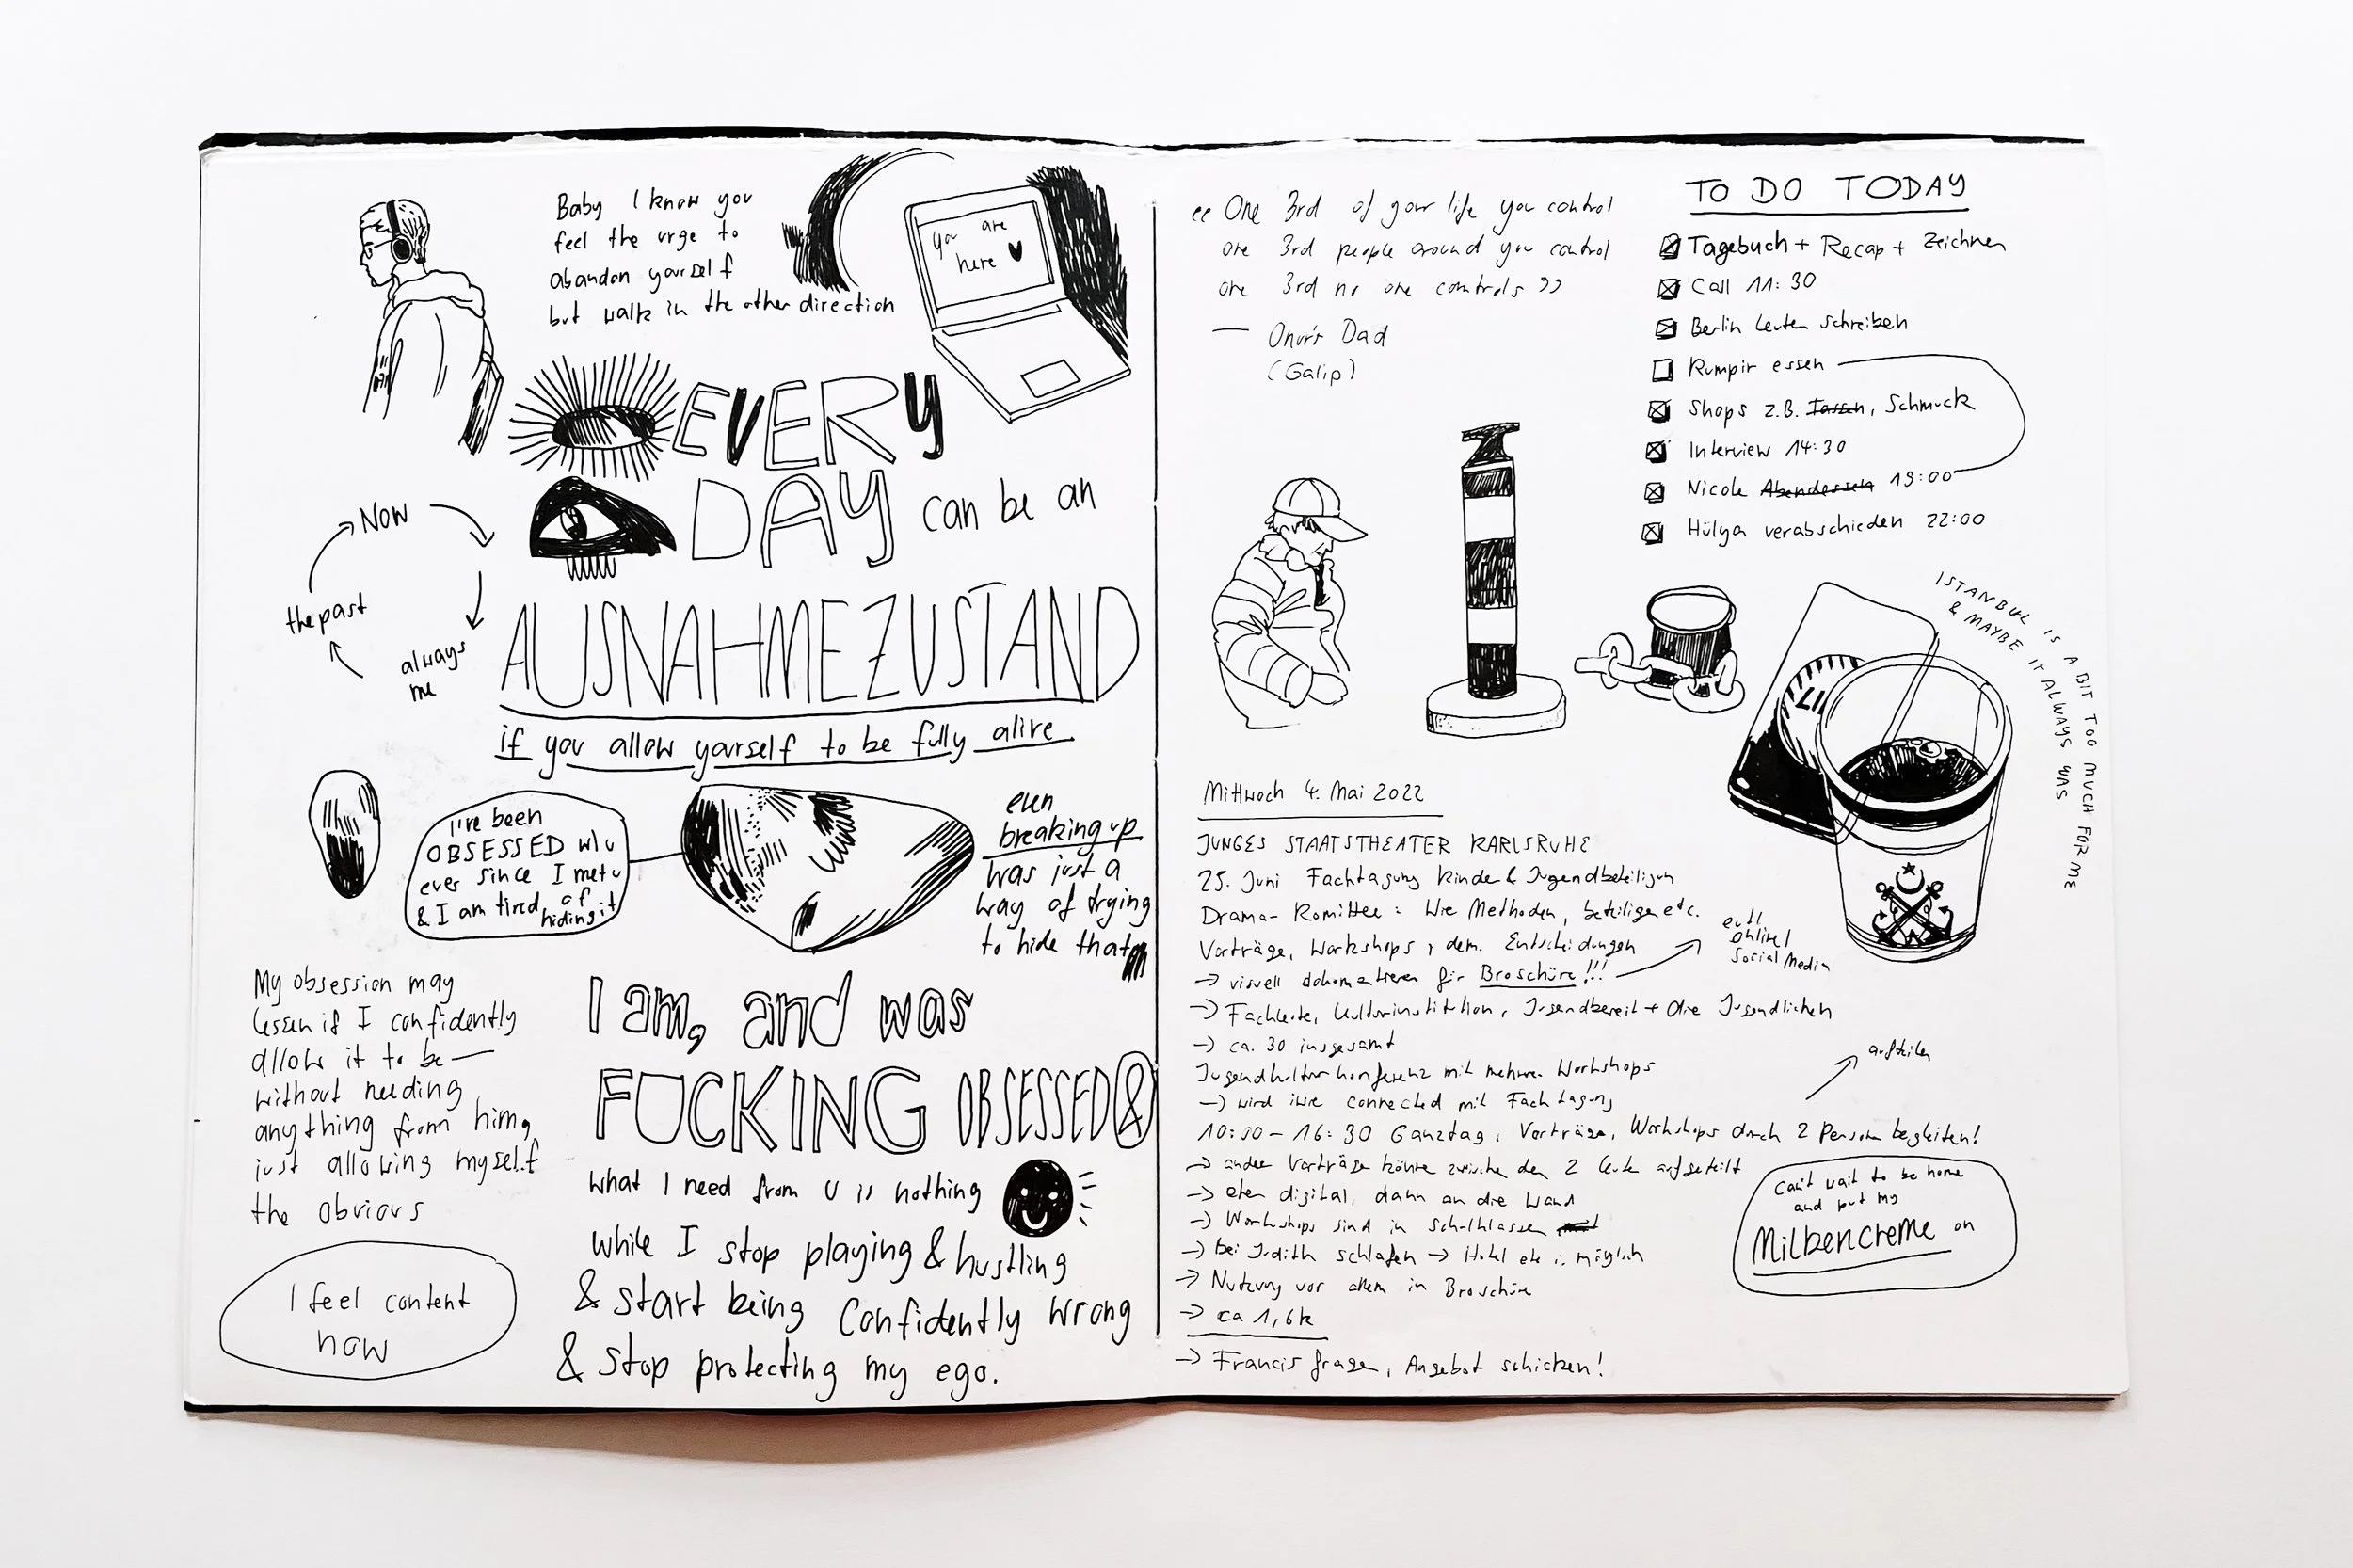 Baby I know you
feel the urge to
abandon yourself
but walk in the other direction
you are
here
EVERY
DAY can be an
AUSNAHMEZUSTAND
if you allow yourself to be fully alive
Now
always
me
the past
I've been
OBSESSED w/ u
ever since I met u
& I am tired of
hiding it
even
breaking up
was just a
way of trying
to hide that
My obsession may
lessen if I confidently
allow it to be —
without needing
anything from him,
just allowing myself
the obvious
I feel content
now
I am, and was
FUCKING OBSESSED &
what I need from U is nothing
while I stop playing & hustling
& start being confidently wrong
& stop protecting my ego.
"One 3rd of your life you control
one 3rd people around you control
one 3rd no one controls"
— Onur's Dad
(Galip)
TO DO TODAY
Tagebuch + Recap + Zeichnen
Call 11:30
Berlin Leuten schreiben
Kumpir essen
Shops z.B. Tassen, Schmuck
Interview 14:30
Nicole Abendessen 19:00
Hülya verabschieden 22:00
ISTANBUL IS A BIT TOO MUCH FOR ME
& MAYBE IT ALWAYS WAS
Mittwoch 4. Mai 2022
JUNGES STAATSTHEATER KARLSRUHE
25. Juni Fachtagung Kinder & Jugendbeteiligun
Drama-Komittee: Wie Methoden, beteiligen etc.
Vorträge, Workshops, dem. Entscheidungen
evtl
online/
Social Media
→ visuell dokumentieren für Broschüre!!!
→ Fachleute, Kulturinstitution, Jugendbereit + die Jugendlichen
→ ca. 30 insgesamt
Jugendkulturkonferenz mit mehren Workshops
→ wird ihre connected mit Fachtagung
aufteilen
10:30 – 16:30 Ganztag, Vorträge, Workshops durch 2 Personen begleiten!
→ andere Vorträge könne zwische den 2 Leute aufgeteilt
→ eher digital, dann an die Wand
→ Workshops sind in Schulklassen
→ bei Judith schlafen → Hotel etc. möglich
→ Nutzung vor allem in Broschüre
→ ca 1,6k
→ Francis fragen, Angebot schicken!
Can't wait to be home
and put my
Milbencreme on